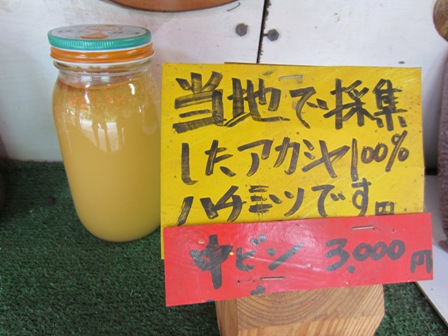 当地で採集
したアカシヤ100%
ハチミツです
円
中ビン 3,000円